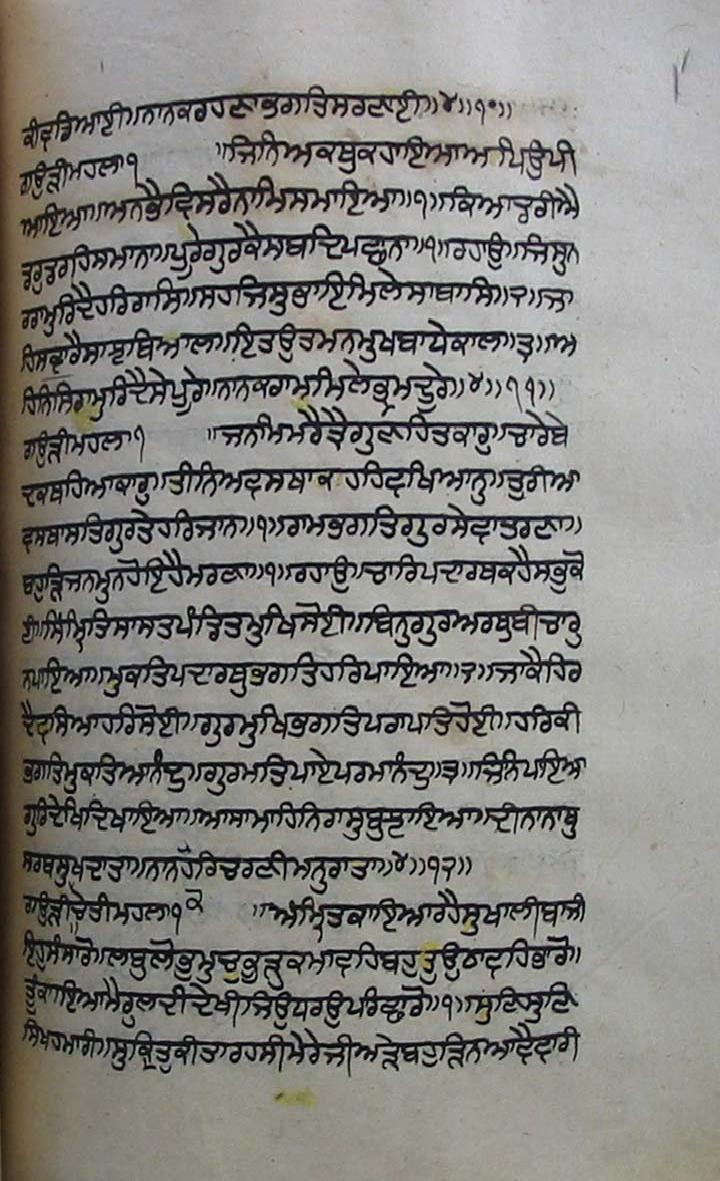 ਕੀਵਡਿਆਈ॥ਨਾਨਕਰਹਣਾਭਗਤਿਸਰਣਾਈ॥੪॥੧੦॥
ਗਉੜੀਮਹਲਾ੧ ॥ਜਿਨਿਅਕਥੁਕਹਾਇਆਅਪਿਉਪੀ
ਆਇਆ॥ਅਨਭੈਵਿਸਰੈਨਾਮਿਸਮਾਇਆ॥੧॥ਕਿਆਡਰੀਐ
ਡਰੁਡਰਹਿਸਮਾਨਾ॥ਪੂਰੇਗੁਰਕੈਸਬਦਿਪਛਾਨਾ॥੧॥ਰਹਾਉ॥ਜਿਸੁਨ
ਰਰਾਮੁਰਿਦੈਹਰਿਰਾਸਿ॥ਸਹਜਿਸੁਭਾਇਮਿਲੇਸਾਬਾਸਿ॥੨॥ਜਾ
ਹਿਸਵਾਰੈਸਾਝਬਿਆਲ॥ਇਤਉਤਮਨਮੁਖਬਾਧੇਕਾਲ॥੩॥ਅ
ਹਿਨਿਸਿਰਾਮੁਰਿਦੈਸੇਪੂਰੇ॥ਨਾਨਕਰਾਮਮਿਲੇਭ੍ਰਮਦੂਰੇ॥੪॥੧੧॥
ਗਉੜੀਮਹਲਾ੧ ॥ਜਨਮਿਮਰੈਤ੍ਰੈਗੁਣਹਿਤਕਾਰੁ॥ਚਾਰੇਬੇ
ਦਕਥਹਿਆਕਾਰੁ॥ਤੀਨਿਅਵਸਥਾਕਹਹਿਵਖਿਆਨੁ॥ਤੁਰੀਆ
ਵਸਥਾਸਤਿਗੁਰਤੇਹਰਿਜਾਨ॥੧॥ਰਾਮਭਗਤਿਗੁਰਸੇਵਾਤਰਣਾ॥
ਬਹੁੜਿਜਨਮੁਨਹੋਇਹੈਮਰਣਾ॥੧॥ਰਹਾਉ॥ਚਾਰਿਪਦਾਰਥਕਹੈਸਭੁਕੋ
ਈ॥ਸਿੰਮ੍ਰਿਤਿਸਾਸਤਪੰਡਿਤਮੁਖਿਸੋਈ॥ਬਿਨੁਗੁਰਅਰਥੁਬੀਚਾਰੁ
ਨਪਾਇਆ॥ਮੁਕਤਿਪਦਾਰਥੁਭਗਤਿਹਰਿਪਾਇਆ॥੨॥ਜਾਕੈਹਿਰ
ਦੈਵਸਿਆਹਰਿਸੋਈ॥ਗੁਰਮੁਖਿਭਗਤਿਪਰਾਪਤਿਹੋਈ॥ਹਰਿਕੀ
ਭਗਤਿਮੁਕਤਿਆਨੰਦੁ॥ਗੁਰਮਤਿਪਾਏਪਰਮਾਨੰਦੁ॥੩॥ਜਿਨਿਪਾਇਆ
ਗੁਰਿਦੇਖਿਦਿਖਾਇਆ॥ਆਸਾਮਾਹਿਨਿਰਾਸੁਬੁਝਾਇਆ॥ਦੀਨਾਨਾਥੁ
ਸਰਬਸੁਖਦਾਤਾ॥ਨਾਨਹਰਿਚਰਣੀਮਨੁਰਾਤਾ॥੪॥੧੨॥
ਗਉੜੀਚੇਤੀਮਹਲਾ੧ ਕ ॥ਅੰਮ੍ਰਿਤਕਾਇਆਰਹੈਸੁਖਾਲੀਬਾਜੀ
ਇਹੁਸੰਸਾਰੋ॥ਲਬੁਲੋਭੁਮੁਚੁਕੂੜੁਕਮਾਵਹਿਬਹੁਤੁਉਠਾਵਹਿਭਾਰੋ॥
ਤੂੰਕਾਇਆਮੈਰੁਲਦੀਦੇਖੀਜਿਉਧਰਉਪਰਿਛਾਰੋ॥੧॥ਸੁਣਿਸੁਣਿ
ਸਿਖਹਮਾਰੀ॥ਸੁਕ੍ਰਿਤੁਕੀਤਾਰਹਸੀਮੇਰੇਜੀਅੜੇਬਹੁੜਿਨਆਵੈਵਾਰੀ